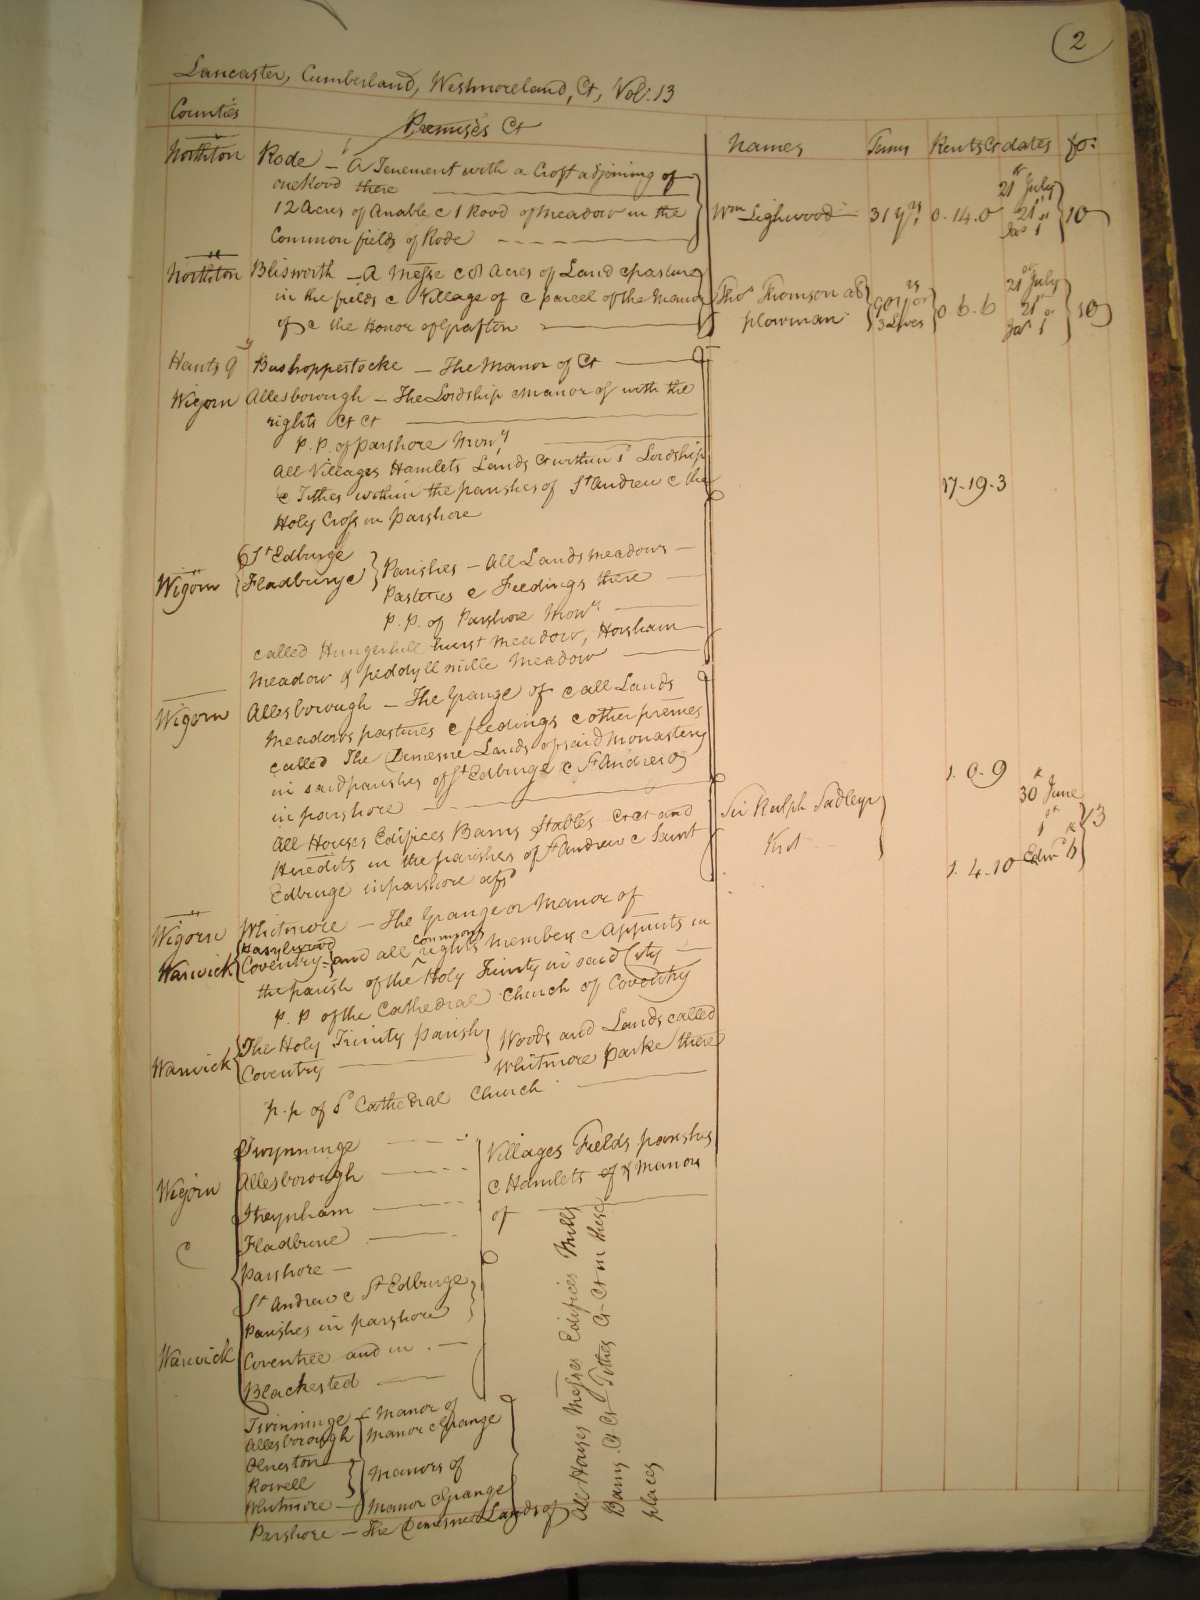 2
Lancaster, Cumberland, Westmoreland, Ct, Vol. 13
Counties
Premises Ct
Names
Terms
Rents Ct dates
fo:
Northton
Rode — A Tenement with a Croft adjoining of
one Rood there
12 Acres of Arable & 1 Rood of meadow in the
Common fields of Rode
Wm Lighwood
31 yrs
0. 14. 0
21st July
21st
Jas 1
10
Northton
Blisworth — A Messe & 81 Acres of Land & pasture
in the fields & Village of & parcel of the Manor
of & the Honor of Grafton
Thos Thomson als
plowman
90 yrs or
3 Lives
0. 6. 6
21st July
21st
Jas 1
10
Hants
Bushoppestocke — The Manor of Ct
Wigorn
Allesborough — The Lordship & Manor of with the
rights Ct Ct
p. p. of parshore Mony
All Villages Hamlets Lands Ct within sd Lordship
& Tithes within the parishes of St Andrew & the
Holy Cross in parshore
17. 19. 3
Wigorn
St Edburge
Fladburye
Parishes — All Lands meadows
Pastures & Feedings there
p. p. of Parshore Mony
called Hungerhill hurst meadow, Horsham
meadow & peddyll mille meadow
Wigorn
Allesborough — The Grange of & all Lands
meadows pastures & feedings & other premes
called The Demesne Lands of said monastery
in said parishes of St Edburge & St Andrew
in parshore
1. 0. 9
All Houses Edifices Barns Stables Ct Ct and
Heredits in the parishes of St Andrew & Saint
Edburge in parshore afsd
Sir Ralph Sadleyr
Knt
1. 4. 10
30th June
1st
Edwd 6th
13
Wigorn
Whitmore — The Grange or Manor of
Warwick
Hasylwood
Coventry
and all commons rights members & Appurts in
the parish of the Holy Trinity in said City
p. p of the Cathedral Church of Coventry
Warwick
The Holy Trinity parish
Coventry
Woods and Lands called
Whitmore parke there
p. p of sd Cathedral Church
Wigorn
&
Warwick
Twynninge
Allesborough
Fladbure
Parshore —
St Andrew & St Edburge
Parishes in parshore
Coventree and in
Blackested
Villages Fields parishes
& Hamlets of & manor
of
All Houses Messes Edifices Mills
Barns Ct Ct — Tithes Ct Ct in these
places
Twinninge — Manor of
Allesborough
Manor & Grange
Olneston
Rowell
Manors of
Whitmore — Manor & Grange
Parshore — The Demesne Lands of